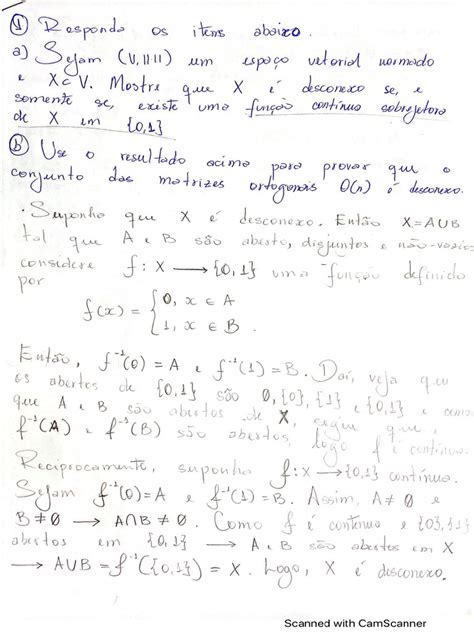 ① Responda os itens abaixo.
a) Sejam (V, ||·||) um espaço vetorial normado
e X⊂V. Mostre que X é desconexo se, e
somente se, existe uma função contínua sobrejetora
de X em {0,1}
b) Use o resultado acima para provar que o
conjunto das matrizes ortogonais O(n) é desconexo.
· Suponha que X é desconexo. Então X=A∪B
tal que A e B são aberto, disjuntos e não-vazios
considere f: X → {0,1} uma função definida
por
f(x) = { 0, x ∈ A
1, x ∈ B .
Então, f⁻¹(0) = A e f⁻¹(1) = B. Daí, veja que
os abertos de {0,1} são ∅, {0}, {1} e {0,1} e como
que A e B são abertos de X, segue que
f⁻¹(A) e f⁻¹(B) são abertos, logo f é contínua.
Reciprocamente, suponha f: X → {0,1} contínua.
Sejam f⁻¹(0) = A e f⁻¹(1) = B. Assim, A ≠ ∅ e
B ≠ ∅ → A∩B ≠ ∅. Como f é contínua e {0},{1}
abertos em {0,1} → A e B são abertos em X
→ A∪B = f⁻¹({0,1}) = X. Logo, X é desconexo.
Scanned with CamScanner